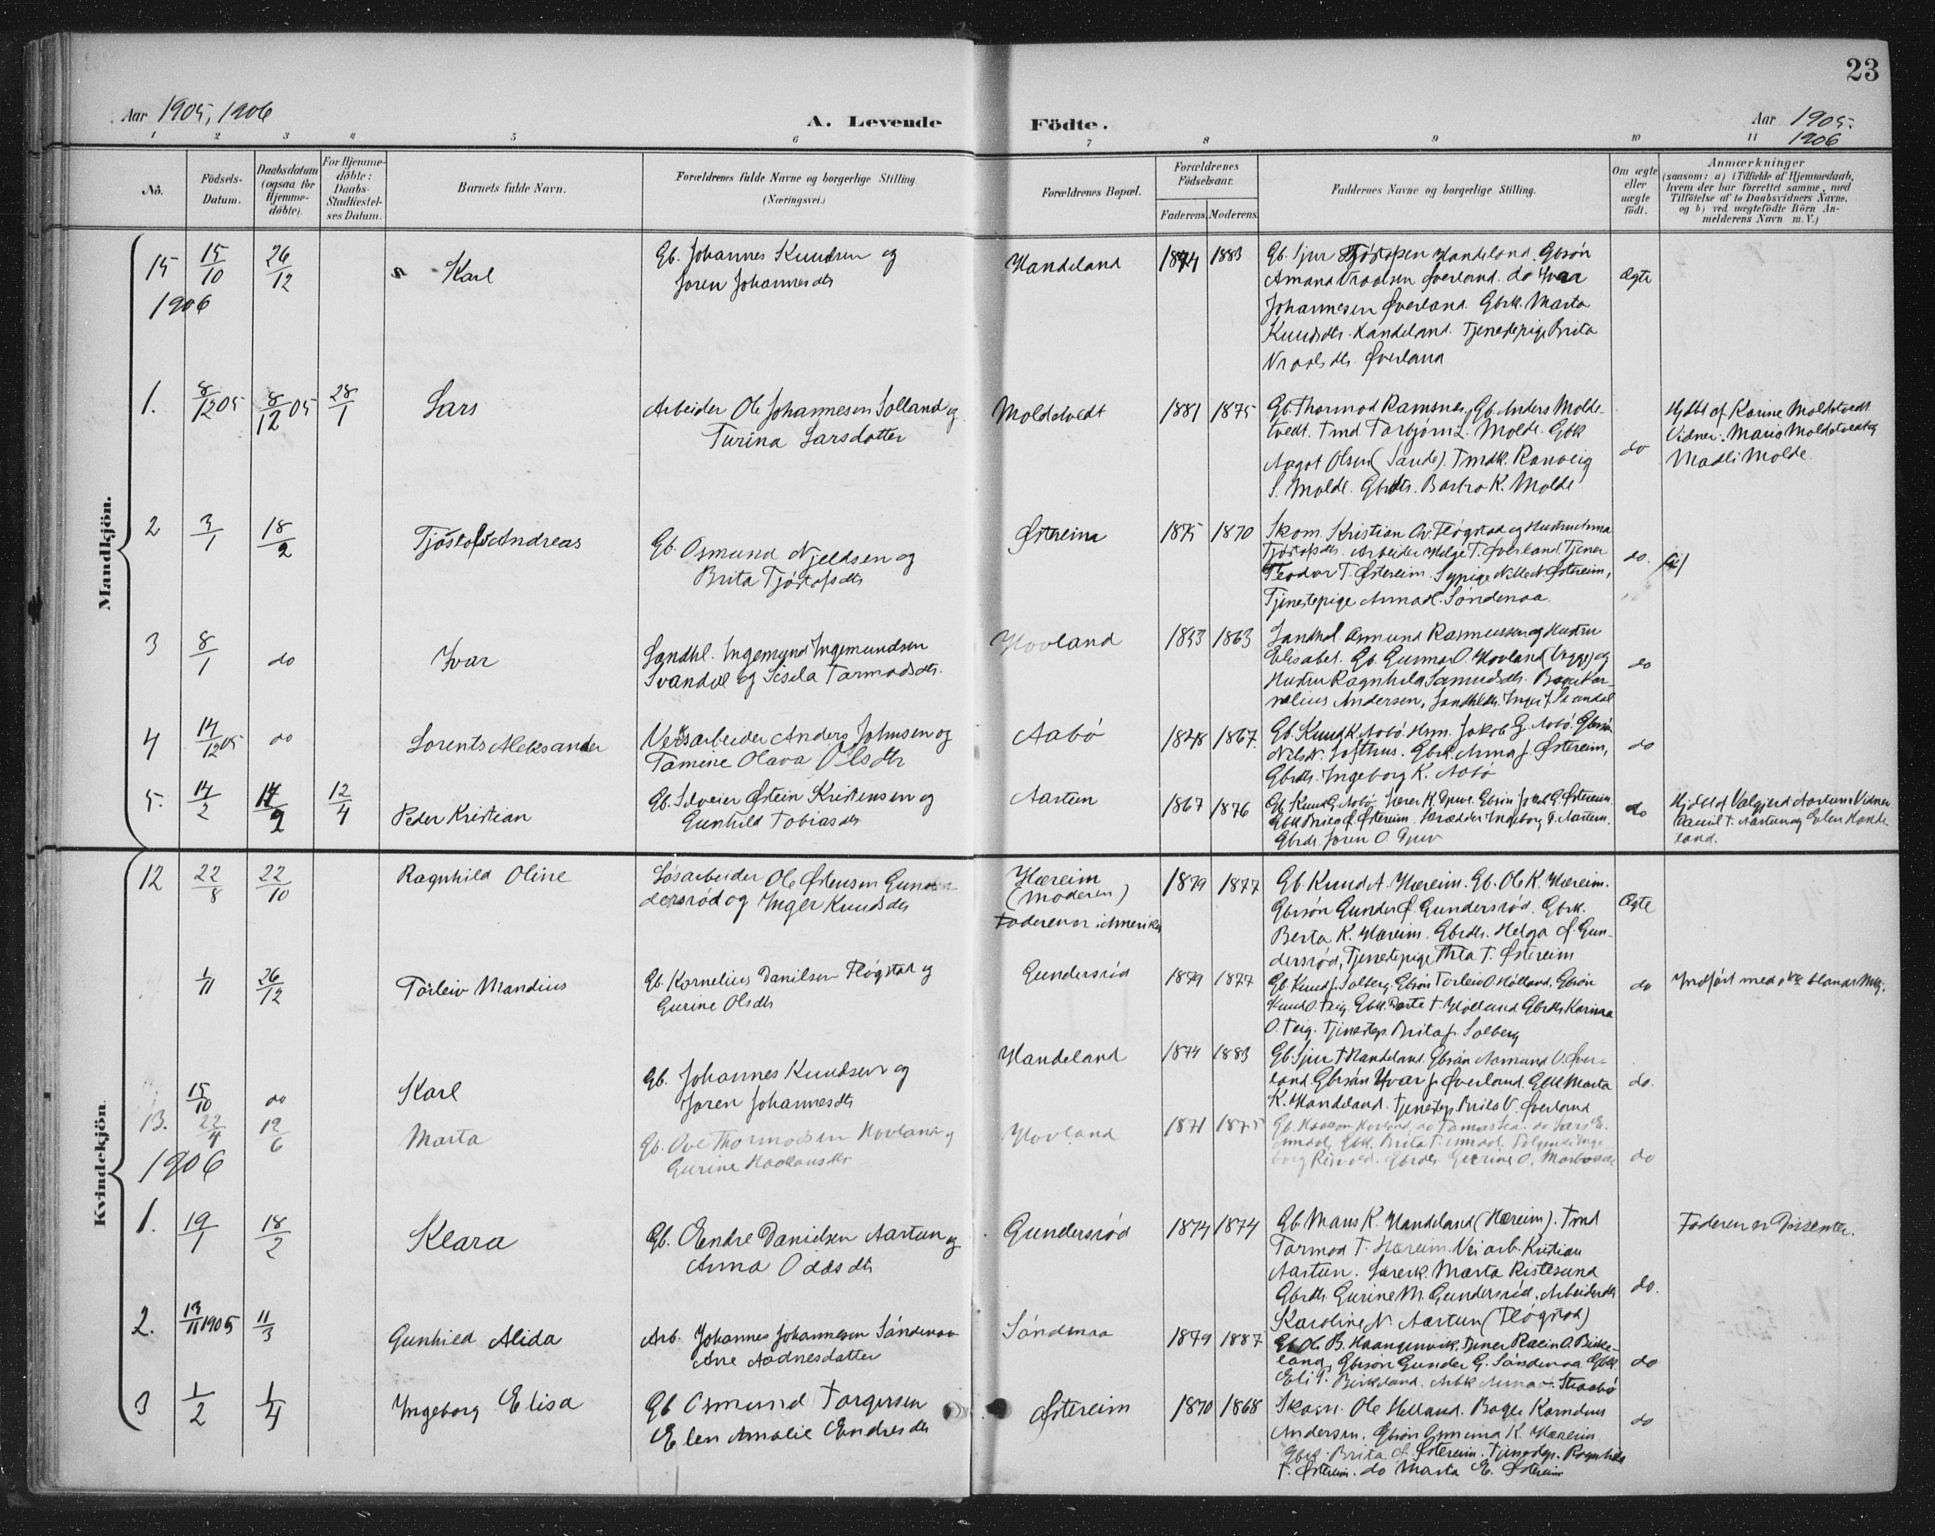 23
Aar 1905, 1906
A. Levende Födte.
Aar 1905.
1906
1 2 3 4 5 6 7 8 9 10 11
No.
Födsels-Datum.
Daabsdatum (ogsaa for Hjemme-döbte).
For Hjemme-döbte: Daabs-Stadfæstel-ses Datum.
Barnets fulde Navn.
Forældrenes fulde Navne og borgerlige Stilling (Næringsvei.)
Forældrenes Bopæl.
Forældrenes Födselsaar.
Faderens. Moderens.
Faddernes Navne og borgerlige Stilling.
Om ægte eller uægte födt.
Anmærkninger
(saasom: a) i Tilfælde af Hjemmedaab, hvem der har forrettet samme, med Tilföielse af to Daabsvidners Navne, og b) ved uægtefödte Börn An-melderens Navn m. V.)
Mandkjön.
15 15/10 26/12 Karl
Gb. Johannes Knudsen og
Joren Johannesdtr
Handeland 1874 1883
Gb. Sjur Handeland. Gbsön
Amund Øverland. do Ivar
Johannesen Øverland. Gbrk. Marta
Knudsdtr. Handeland. Tjenestepige Brita
Øverland
Ægte
1906
1. 8/12 05 8/12 05 28/1 Lars
Arbeider Ole Johannesen Solland og
Turina Larsdatter
Moldetvedt 1881 1875
Gb. Thormod Ramsnes, Gb. Anders Molde-
tvedt. Tmd. Torbjörn L. Molde. Gbk
Aagot Olsen (Sande). Tmdk. Ranveig
S. Molde. Gbdtr. Barbro K. Molde
do
Hjdbt af Karine Moldetvedt
Vidner: Maris Moldetvedt og
Madli Molde.
2 3/1 18/2 Tjöstolf Andreas
Gb. Osmund Njeldsen og
Brita Tjöstofsdtr
Østereim 1875 1870
Skom. Kristian Chr. Fløgstad og Hustru Anna
Tjöstofsdtr. Arbeider Helge T. Øverland. Tjener
Teodor T. Østereim. Sypige Nille N. Østereim,
Tjenestepige Anna L. Søndenaa.
do.
3 8/1 do Ivar
Landhl. Ingemund Ingemundsen
Svandal og Sisela Tormodsdtr.
Hovland 1853 1863
Landhdl. Osmund Rasmussen og Hustru
Elisabet. Gb. Gunnar O. Hovland og
Hustru Ragnhild Samuelsdtr. Kor-
nelius Andersen, Landhldtr. Inger J. Svandal
do
4 14/12 05 do Lorents Aleksander
Veiarbeider Anders Johnsen og
Tomine Olava Olsdtr
Aabö 1848 1867.
Gb. Knud K. Aabö. Hsm. Jakob G. Aabö. Gbsön
Nils N. Lofthus. Gbrk. Anna J. Østereim,
Gbrdtr. Ingeborg K. Aabö
do
5. 14/2 17/2 12/4 Peder Kristian
Gb. Selveier Østein Kristensen og
Gunhild Tobiasdtr
Aartun 1867 1876
Gb. Knud G. Aabö. Lærer K. Djuv. Gbsön G. Østereim.
Gbk Brita Ø. Østereim. Ingeborg T. Aartun.
Gbrdtr. Joren O. Djuv
do
Hjdbt af Valgjerd Aartun. Vidner
Daniel T. Aartun og Elen Hande-
land.
Kvindekjön.
12 22/8 22/10 Ragnhild Oline
Løsarbeider Ole Østensen Gun-
dersrød og Inger Knudsdtr
Hæreim
(Moderen)
Faderen er i Amerika
1879 1877
Gb. Knud A. Hæreim. Gb. Ole K. Hæreim.
Gbrsön Gunder Ø. Gundersrød. Gbrk.
Berta K. Hæreim. Gbrdtr. Helga Ø. Gun-
dersrød, Tjenestepige T. Østereim
Ægte
1/11 26/12 Torleiv Mandius
Gb. Kornelius Danielsen Fløgstad og
Gurine Olsdtr
Gundersrød 1879 1877
Gb. Knud J. Solberg. Gbsön Torleiv O. Hølland. Gbsön
Knud O. Teig. Gbk. Dorte T. Hølland Gbrdtr Karina
O. Teig. Tjenestep. Brita J. Solberg
do
Indført med blandt Mkj.
15/10 do Karl
Gb. Johannes Knudsen og
Joren Johannesdtr
Handeland 1874 1883
Gb. Sjur T. Handeland. Gbsön Aamund V. Øver-
land. Gbrsön Ivar J. Øverland. Gbk Marta
K. Handeland. Tjenestep. Brita V. Øverland
do.
13. 22/4 12/6 Marta
Gb. Ove Thormodsen Hovland og
Gurine Haakonsdtr
Hovland 1871 1875
Gb. Haakon Hovland, do
Gbk. Brita T.
Gbrdtr Gurine O.
do
1906
1. 19/1 18/2 Klara
Gb. Endre Danielsen Aartun og
Anna Oddsdtr
Gundersrød 1874 1874
Gb. Mans K. Handeland (Hæreim). Tmd
Tormod T. Hæreim. Veiarb. Kristian
Aartun. Lærerk. Marta Ristesund
Gbrdtr Gurine M. Gundersrød. Arbeiderdtr
Karoline N. Aartun (Fløgstad)
do.
Faderen er Dissenter.
2. 13/11 1905 11/3 Gunhild Alida
Arb. Johannes Johannesen Söndenaa
Ane Aadnesdatter
Söndenaa 1879 1887
Gb. Ole B. Haangenvik. Tjener Rasm O. Birke-
land, Gbrsön Gunder G. Söndenaa Gbk
Eli T. Birkeland. Arbk Anna Straabö
do
3 1/2 1/4 Ingeborg Elisa
Gb Osmund Torgersen
Elen Amalie Endresdtr
Østereim 1870 1868
Skom. Ole Helland. Bager Kornelius
Andersen. Gbsön Osmund K. Hæreim
Gbrk. Brita Ø. Østereim. Tjenestep. Ragnhild
T. Østereim. do Marta E. Østereim
do